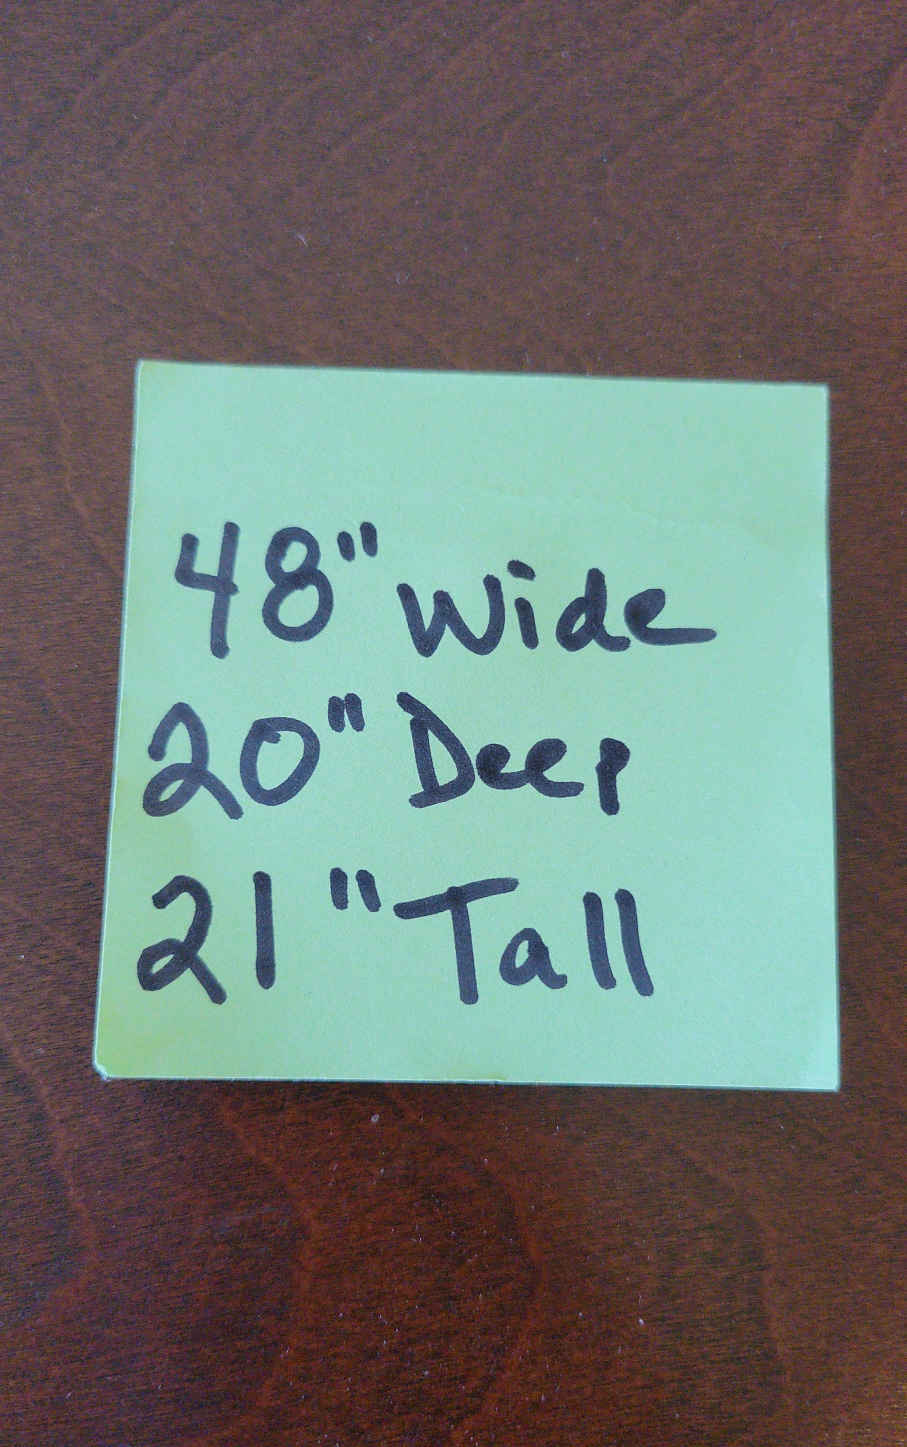 48" Wide
20" Deep
21" Tall